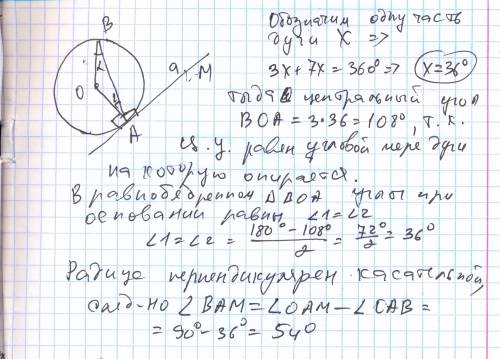 Обозначим одну часть
дуги X =>
3X + 7X = 360° => X = 36°
тогда центральный угол
BOA = 3·36 = 108°, т.к.
ц.у. равен угловой мере дуги
на которую опирается.
В равнобедренном △BOA углы при
основании равны ∠1=∠2
∠1=∠2 = (180°-108°)/2 = 72°/2 = 36°
Радиус перпендикулярен касательной,
след-но ∠BAM = ∠OAM - ∠CAB =
= 90° - 36° = 54°
B
O
A
a
M